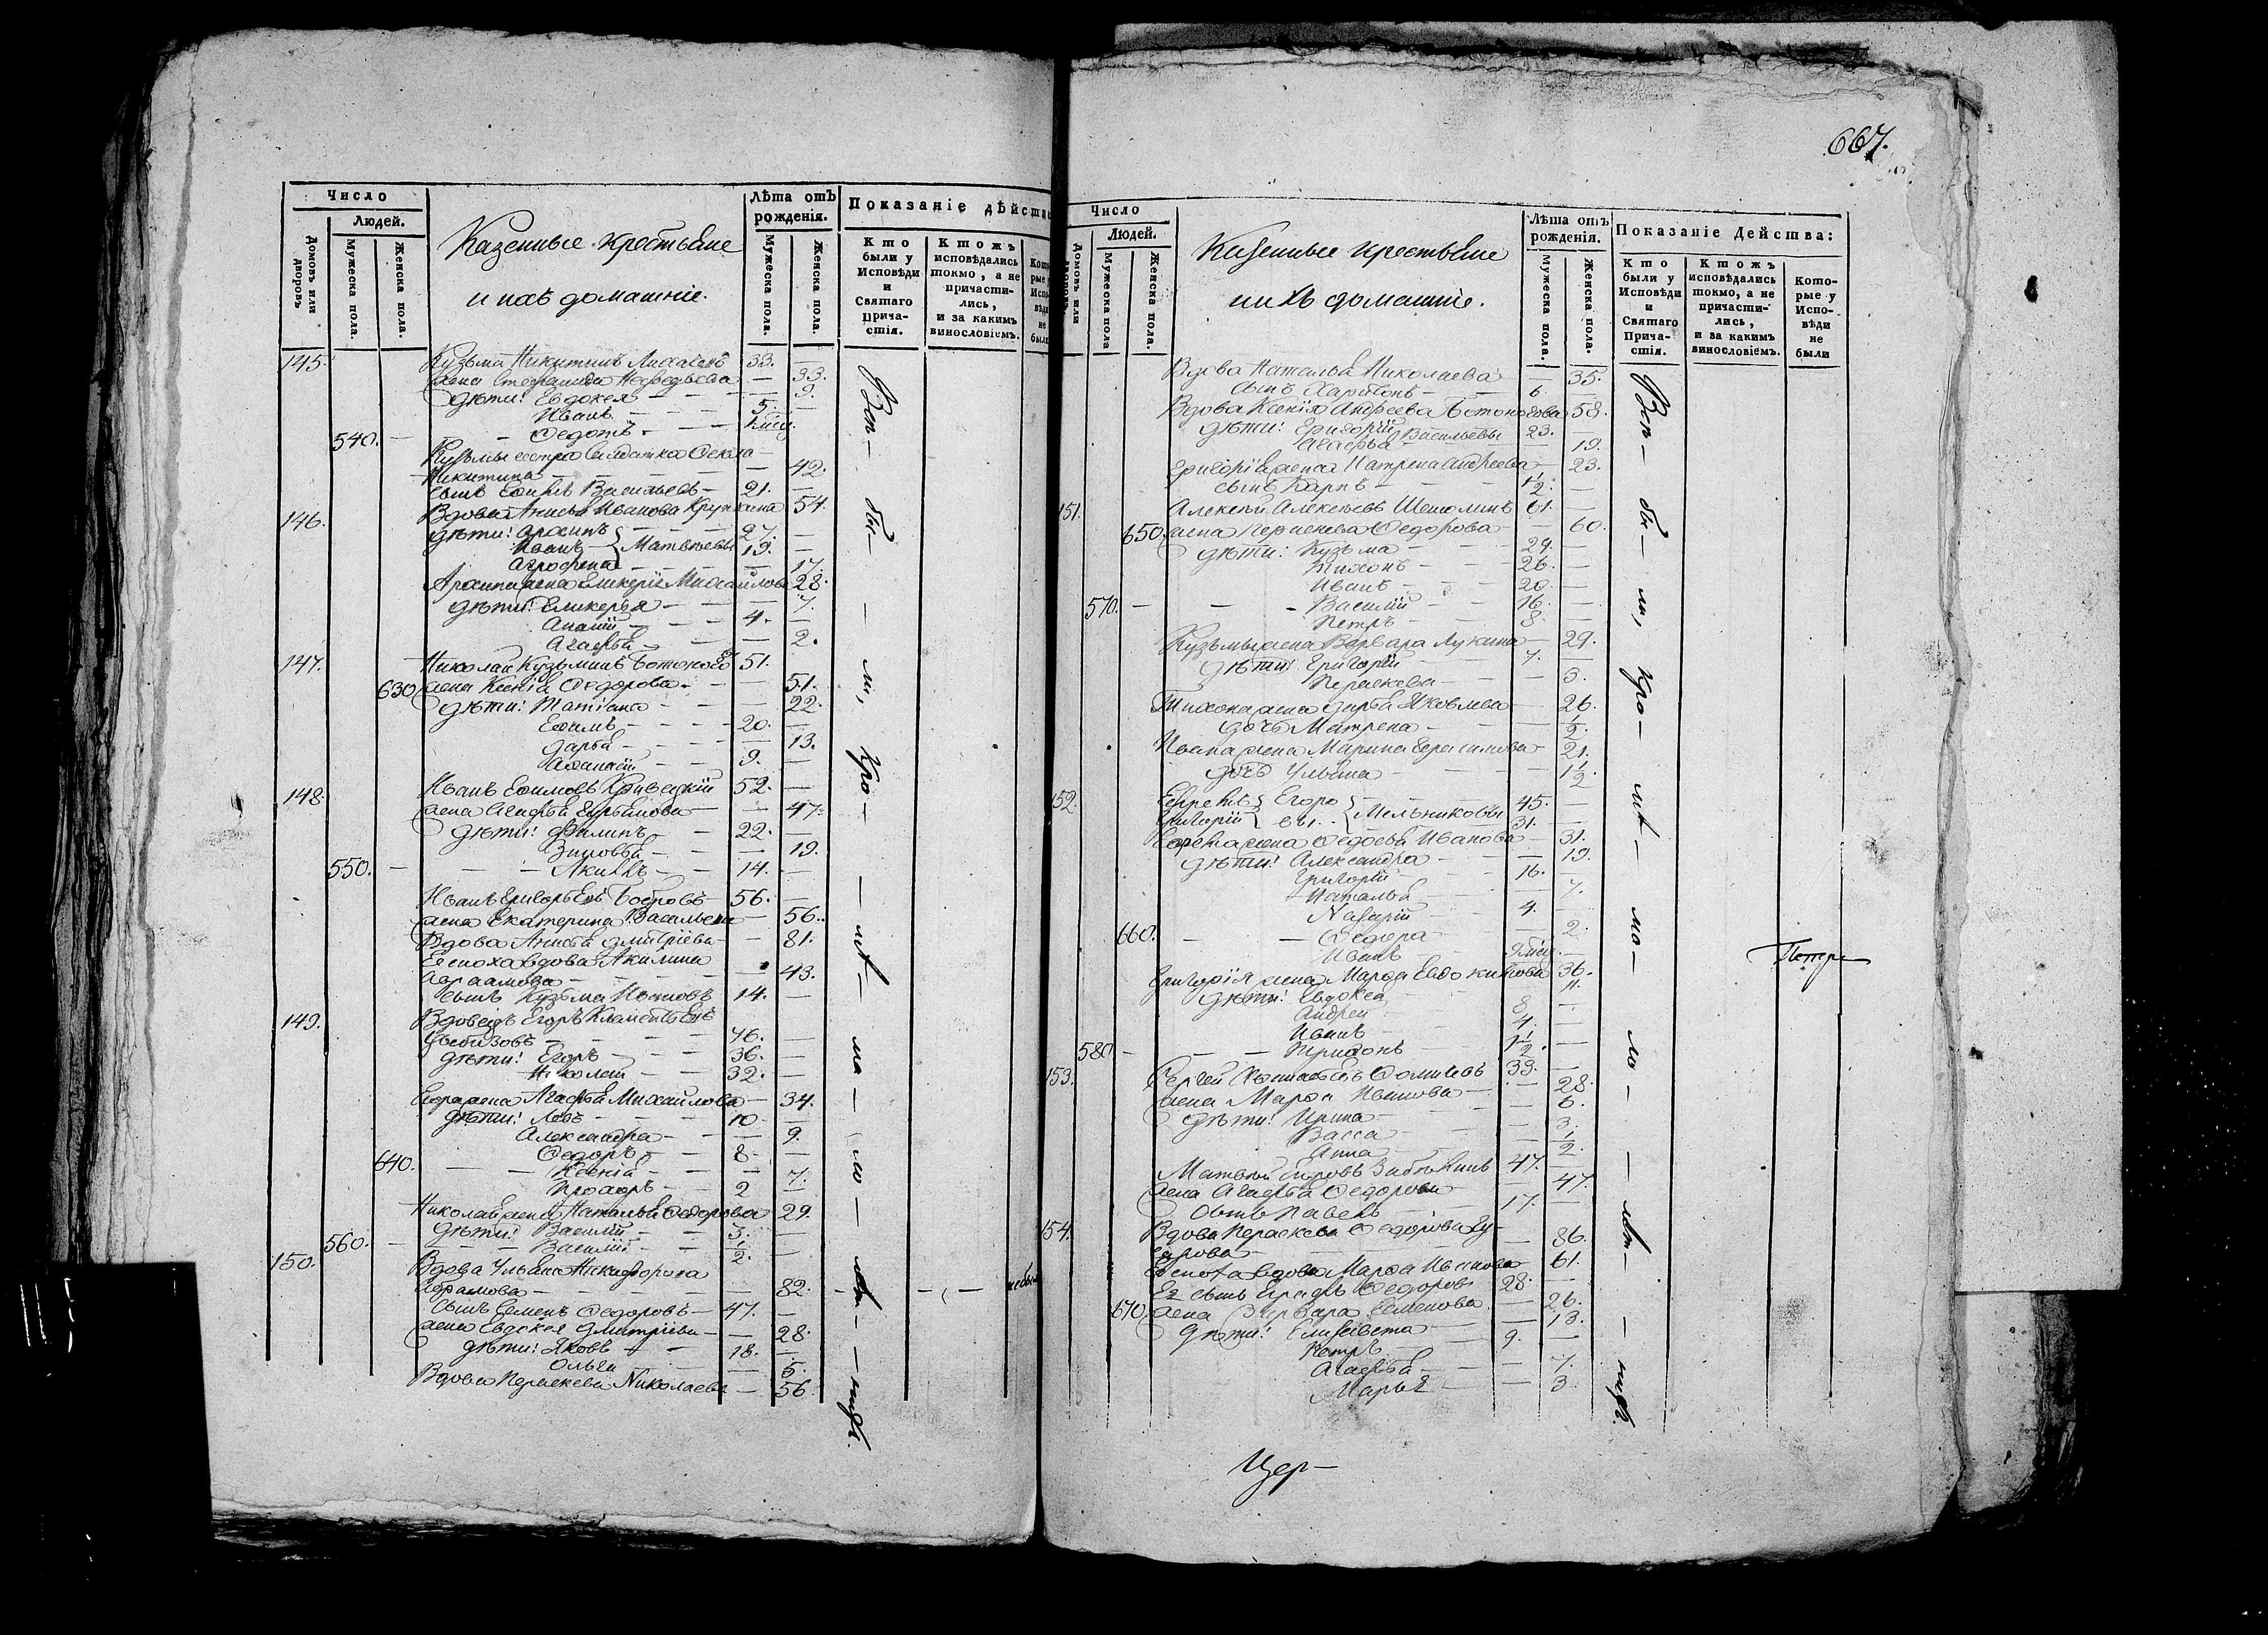 667.
Число
Людей.
Домовъ или дворовъ
Мужеска пола.
Женска пола.
Казенные крестьяне
и ихъ домашніе.
Лѣта отъ рожденія.
Мужеска пола.
Женска пола.
Показаніе дѣйства
Кто были у Исповѣди и Святаго Причастія.
Ктожъ исповѣдались токмо, а не причастились, и за какимъ винословіемъ.
145. Кузьма Никитинъ 33. —
жена Степанида — 33.
дѣти: Евдокея — — 9.
Иванъ — 5. —
540. — Федотъ —
Кузьмы сестра солдатка Фекла
Никитина — 42.
сынъ Ефимъ Васильевъ — 21. —
146. Вдова Анисья Иванова 54.
дѣти: Архипъ — 27. —
Иванъ — Матвѣевы 19. —
Агрофена — 17.
Архипа жена Гликерія Михайлова 28.
дѣти: Гликерья — — 7.
Ананій — 4. —
Агафья — 2.
147. Николай Кузьминъ 51. —
630. жена Ксенія Федорова — 51.
дѣти: Татіана — — 22.
Ефимъ — 20. —
Дарья — 13.
Афанасій — 9. —
148. Иванъ Ефимовъ Кривецкій 52. —
жена Агафья — 47.
дѣти: Филипъ — 22. —
Зиновья — 19.
550. — Акимъ — 14. —
Иванъ Григорьевъ Бобровъ 56. —
жена Екатерина Васильева — 56.
Вдова Анисья Дмитріева — 81.
Ея сноха вдова Акилина
Авраамова — 43.
сынъ Кузьма Ивановъ 14. —
149. Вдовецъ Егоръ Климентьевъ
— 76. —
дѣти: Егоръ — 36. —
Николай — 32. —
Егора жена Агафья Михайлова — 34.
дѣти: Левъ — 10. —
Александра — 9.
Федоръ — 8. —
640. — Ксенія — 7.
Прохоръ — 2 —
Николая жена Наталья Федорова 29.
дѣти: Василій — 3. —
560. — Василій — 1/2. —
150. Вдова Ульяна Никифорова
Абрамова — 82. — не были
сынъ Семенъ Федоровъ — 47. —
жена Евдокея Дмитріева — 28.
дѣти: Яковъ — 18. —
Ольга — 5.
Вдова Пераскева Николаева — 56.
Число
Людей.
Домовъ или дворовъ
Мужеска пола
Женска пола.
Казенные крестьяне
и ихъ домашніе.
Лѣта отъ рожденія.
Мужеска пола.
Женска пола.
Показаніе Действа:
Кто были у Исповѣди и Святаго Причастія.
Ктожъ исповѣдались токмо, а не причастились, и за какимъ винословіемъ.
Которые у Исповѣди не были
Вдова Наталья Николаева — 35.
сынъ Харитонъ — 6. —
Вдова Ксенія Андреева 58.
дѣти: Григорій Васильевы 23. —
Агафья — 19.
Григорія жена Матрена Андреева — 23.
сынъ Карпъ — 1/2. —
151. Алексѣй Алексѣевъ 61. —
650. жена Пераскева Федорова — 60.
дѣти: Кузьма — 29. —
Тихонъ — 26. —
Иванъ — 20. —
570. — Василій — 16. —
Петръ — 8. —
Кузьмы жена Варвара Лукина — 29.
дѣти: Григорій — 7. —
Пераскева — 3.
Тихона жена Дарья Яковлева — 26.
дочь Матрена — 1/2.
Ивана жена Марина Герасимова — 21.
дочь Ульяна — 1 1/2.
152. Ефремъ Егоро — 45. —
Григорій вы. Мельниковы 31. —
Ефрема жена Федосья Иванова — 31.
дѣти: Александра — 19.
Григорій — 16. —
Наталья — 7.
Назарій — 4. —
660. — Федора — 2.
Иванъ —
Григорія жена Марфа Евдокимова 36.
дѣти: Евдокея 11.
Андрей 8 —
Иванъ 4. —
580. — Трифонъ 1 1/2. —
153. Сергей Фоминъ 33. —
жена Марфа Иванова — 28.
дѣти: Ирина — 6.
Васса — 3.
Анна — 1/2.
Матвѣй 47. —
жена Агафья Федорова — 47.
сынъ Павелъ — 17. —
154. Вдова Пераскева Федорова
— 86.
Ея сноха вдова Марфа Иванова — 61.
Ея сынъ Федоровъ 28. —
670. жена Варвара Семенова — 26.
дѣти: Елисавета — 13.
Петръ — 9. —
Агафья — 7.
Марья — 3.
Цер-